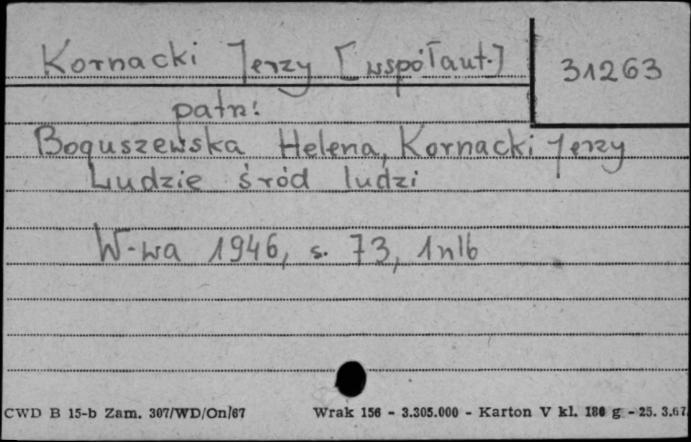 Kornacki Jerzy [współaut.]
31263
patrz:
Boguszewska Helena, Kornacki Jerzy
Ludzie śród ludzi
W-wa 1946, s. 73, 1nlb
CWD B 15-b Zam. 307/WD/On/67 Wrak 156 - 3.305.000 - Karton V kl. 180 g - 25. 3.67.